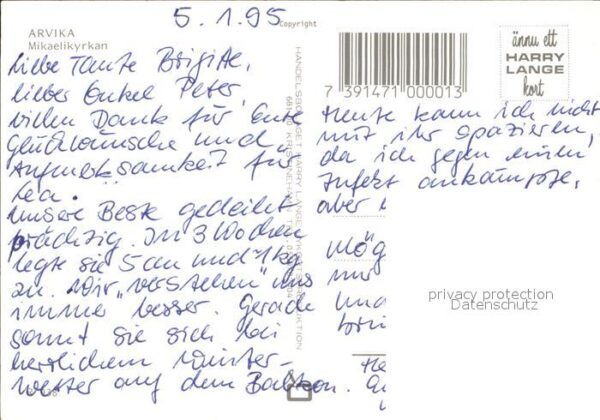 5.1.95
ARVIKA
Mikaelikyrkan
Copyright
Liebe Tante Brigitte,
lieber Onkel Peter,
vielen Dank für Eure
Glückwünsche und
Aufmerksamkeit für
Lea.
Unsere Beste gedeiht
prächtig. In 3 Wochen
legte sie 5 cm und 1 kg
zu. Wir „verstehen" uns
immer besser. Gerade
sonnt sie sich bei
herrlichem Winter-
wetter auf dem Balkon.
HANDELSBOLAGET HARRY LANGE VYKORTSPRODUKTION
KRISTINEHAMN
7 391471 000013
ännu ett
HARRY
LANGE
kort
Heute kann ich nicht
mit ihr spazieren,
da ich gegen einen
Infekt ankämpfe,
aber
Mög
nur
und
privacy protection
Datenschutz